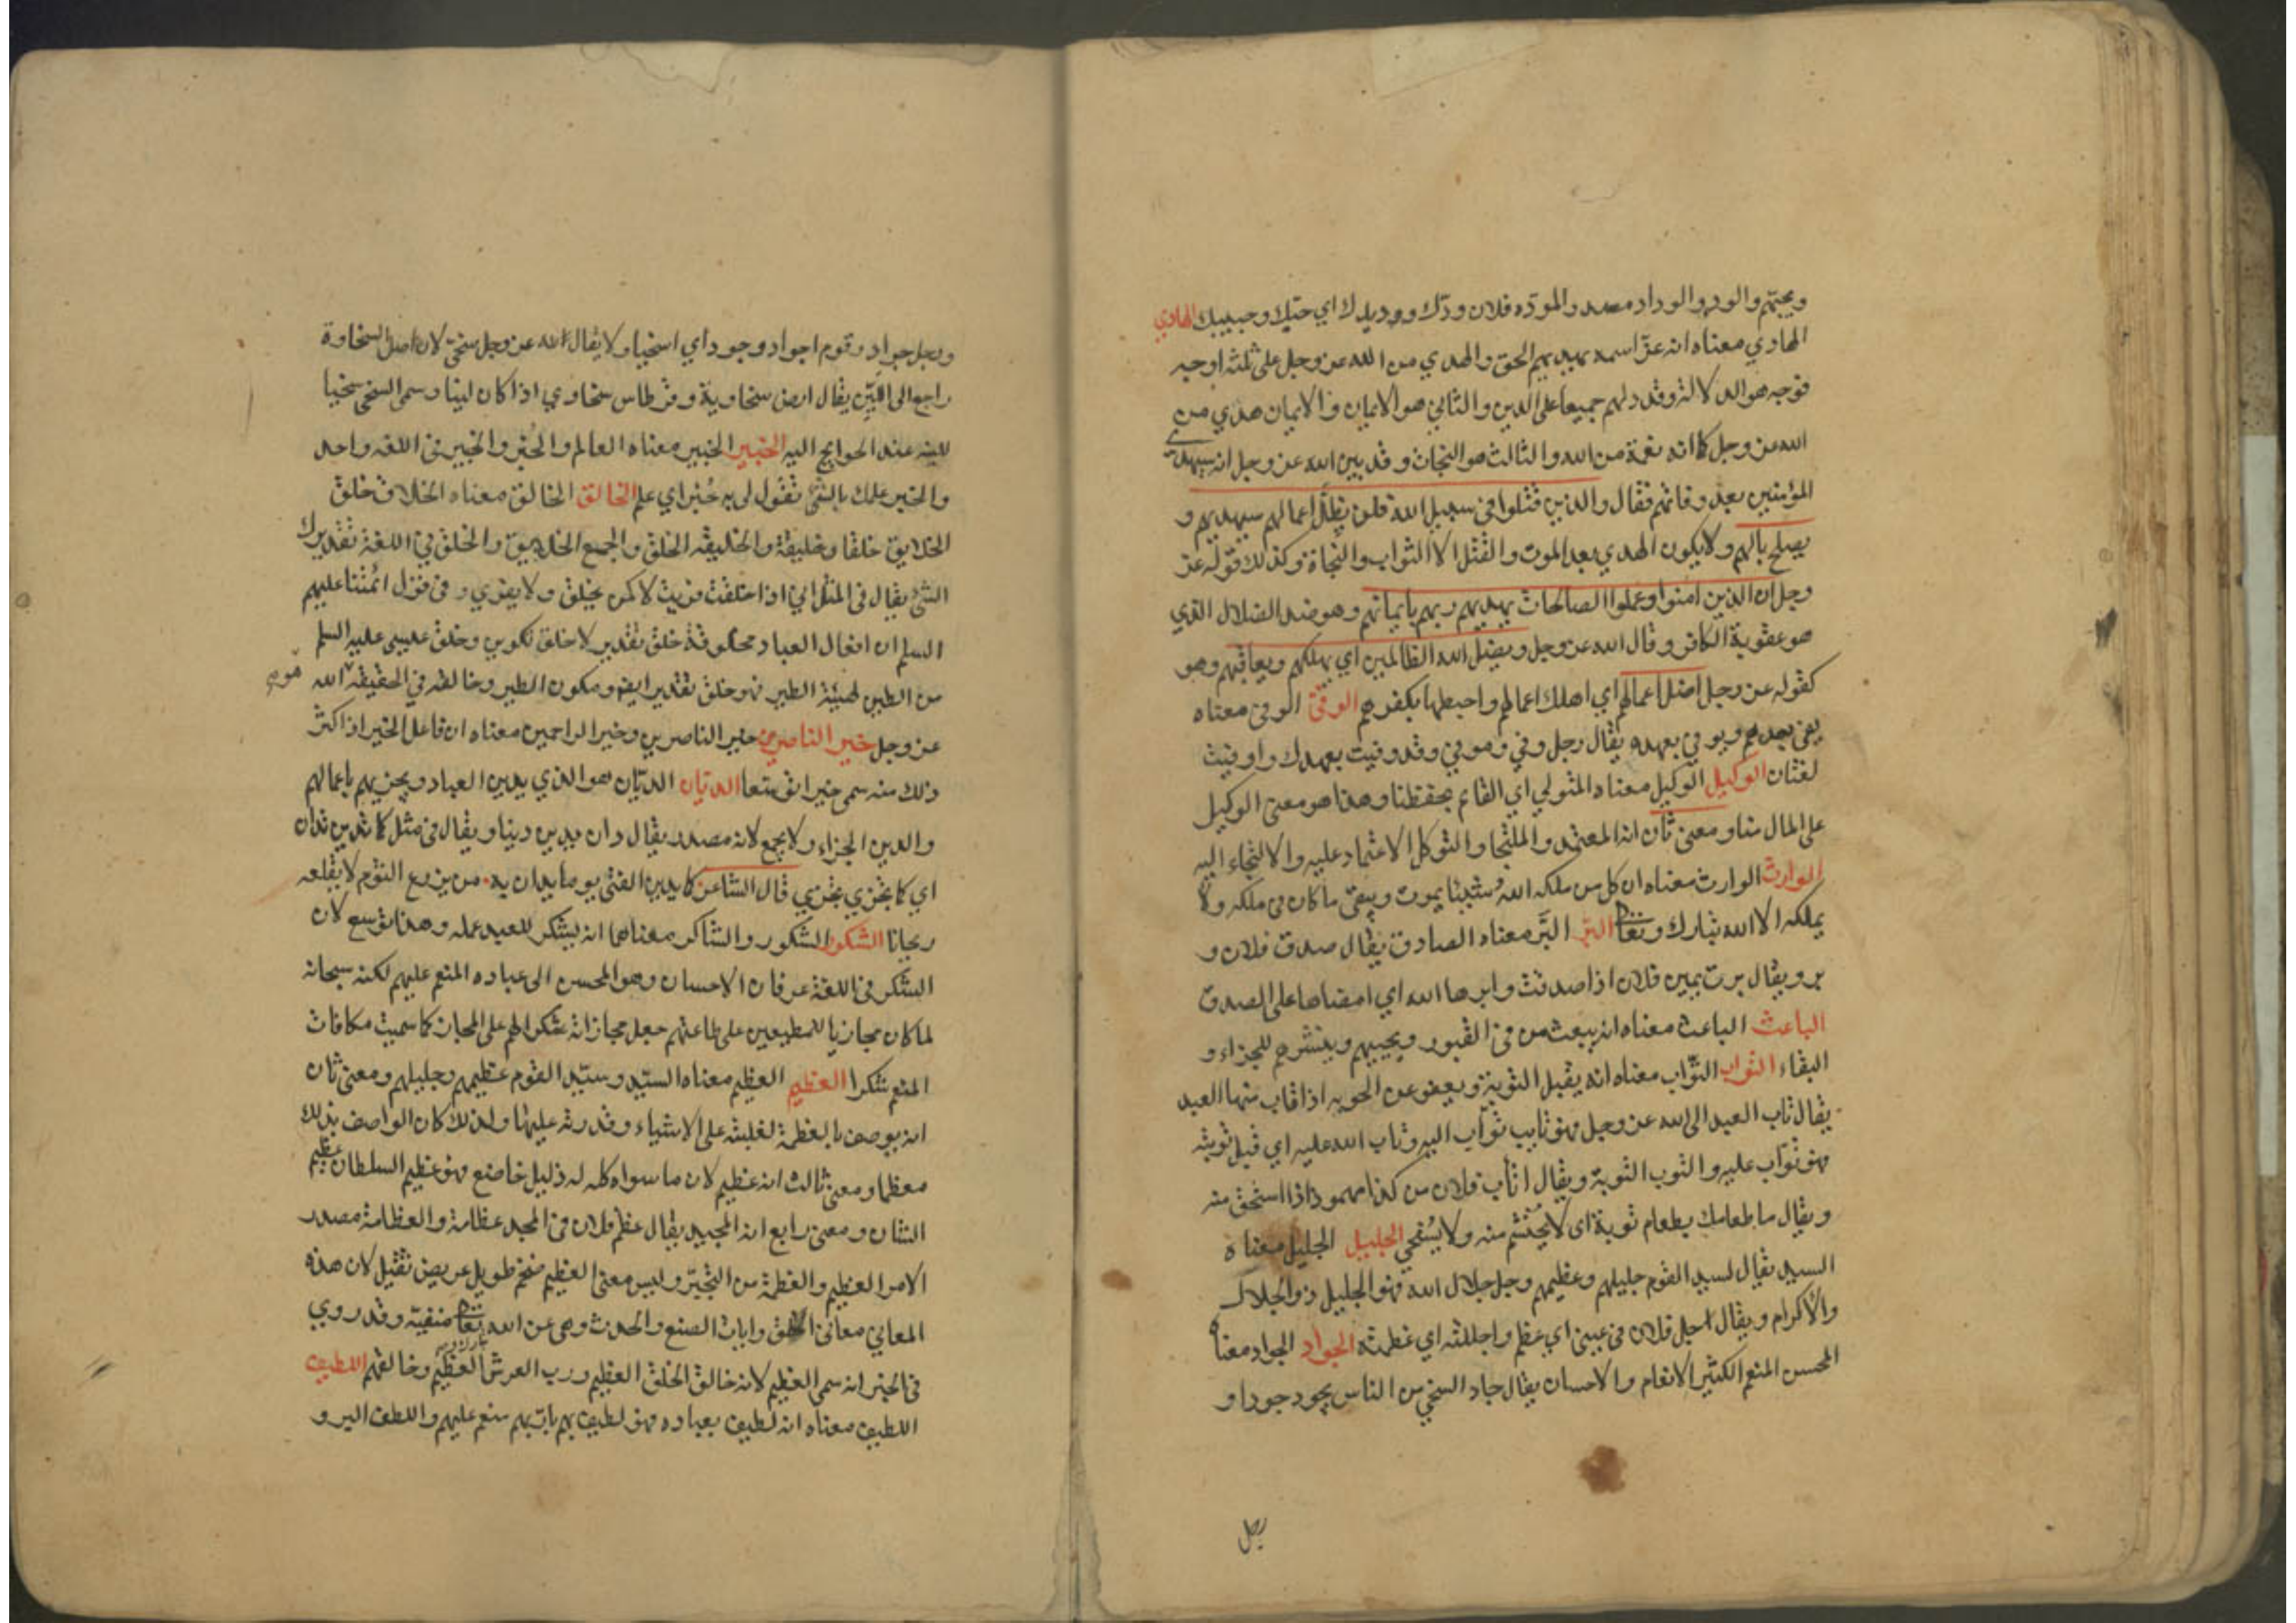 ويحبّهم والود والوداد مصدر والمودّه فلان ودّك ووديدك اي حبّك وحبيبك الهادي
الهادي معناه انه عزّ اسمه يهديهم الحق والهدي من الله عز وجل على ثلثه اوجه
فوجه هو الدلالة وقد دلهم جميعا على الدين والثاني هو الايمان والايمان هدي من
الله عز وجل كما انه نعمة من الله والثالث هو النجاة وقد بين الله عز وجل انه سيهدي
المؤمنين بعد وفاتهم فقال والذين قتلوا في سبيل الله فلن يضل اعمالهم سيهديهم و
يصلح بالهم ولا يكون الهدي بعد الموت والقتل الا الثواب والنجاة وكذلك قوله عز
وجل ان الذين امنوا وعملوا الصالحات يهديهم ربهم بايمانهم وهو ضد الضلال الذي
هو عقوبة الكافر وقال الله عز وجل ويضل الله الظالمين اي يهلكهم ويعاقبهم وهو
كقوله عز وجل اضل اعمالهم اي اهلك اعمالهم واحبطها بكفرهم الوفيّ الوفي معناه
يفي بعهدهم ويوفي بعهده يقال رجل وفي وموفي وقد وفيت بعهدك واوفيت
لغتان الوكيل الوكيل معناه المتولي اي القائم بحفظنا وهذا هو معنى الوكيل
على المال منا ومعنى ثان انه المعتمد والملتجا والتوكل الاعتماد عليه والالتجاء اليه
الوارث الوارث معناه ان كل من ملكه الله شيئا يموت ويبقى ما كان في ملكه ولا
يملكه الا الله تبارك وتعا البرّ البَرّ معناه الصادق يقال صدق فلان و
بر ويقال برت يمين فلان اذا صدقت وابرها الله اي امضاها على الصدق
الباعث الباعث معناه انه يبعث من في القبور ويحييهم وينشرهم للجزاء و
البقاء التواب التوّاب معناه انه يقبل التوبة ويعفو عن الحوبه اذا تاب منها العبد
يقال تاب العبد الى الله عز وجل فهو تايب توّاب اليه وتاب الله عليه اي قبل توبته
فهو توّاب عليه والتوب التوبة ويقال اتأب فلان من كذا مهموزا اذا استحق منه
ويقال ما طعامك بطعام توبة اى لا يُحتشم منه ولا يُستحي الجليل الجليل معناه
السيد يقال لسيد القوم جليلهم وعظيمهم وجل جلال الله فهو الجليل ذو الجلال
والاكرام ويقال اجل فلان في عيني اي عظم واجللته اي عظمته الجواد الجواد معناه
المحسن المنعم الكثير الانعام والاحسان يقال جاد السخي من الناس يجود جودا و
رجل
ورجل جواد وقوم اجواد وجود اي اسخياء ولا يقال الله عز وجل سخيّ لان اصل السخاوة
راجع الى اللين يقال ارض سخاوية وقرطاس سخاوي اذا كان لينا وسمى السخي سخيا
للينه عند الحوايج اليه الخبير الخبير معناه العالم والخُبر والخبير في اللغه واحد
والخبر علمك بالشئ تقول لى به خُبر اي علم الخالق الخالق معناه الخلاق خلق
الخلايق خلقا وخليقة والخليقه الخلق والجمع الخلايق والخلق في اللغة تقديرك
الشئ يقال في المثل اني اذا خلقت فريت لا كمن يخلق ولا يفري وفي قول ائمتنا عليهم
السلم ان افعال العباد مخلوقة خلق تقدير لا خلق تكوين وخلق عيسى عليه السلم
من الطين كهيئة الطير فهو خلق تقدير ايضا ومكون الطير وخالقه في الحقيقه الله
عز وجل خير الناصرين خير الناصرين وخير الراحمين معناه ان فاعل الخير اذا كثر
ذلك منه سمى خيرا توسعا الديّان الديّان هو الذي يدين العباد ويجزيهم باعمالهم
والدين الجزاء ولا يجمع لانه مصدر يقال دان يدين دينا ويقال في مثل كما تدين تدان
اي كما تجزي تجزي قال الشاعر كما يدين الفتى يوما يدان به من يزرع الثوم لا يقلعه
ريحانا الشكور الشكور والشاكر معناهما انه يشكر للعبد عمله وهذا توسع لان
الشكر في اللغة عرفان الاحسان وهو المحسن الى عباده المنعم عليهم لكنه سبحانه
لما كان مجازيا للمطيعين على طاعتهم جعل مجازاته شكرا لهم على المجاز كما سميت مكافات
المنعم شكرا العظيم العظيم معناه السيّد وسيّد القوم عظيمهم وجليلهم ومعنى ثان
انه يوصف بالعظمة لغلبته على الاشياء وقدرته عليها ولذلك كان الواصف بذلك
معظما ومعنى ثالث انه عظيم لان ما سواه كله له ذليل خاضع فهو عظيم السلطان عظيم
الشان ومعنى رابع انه المجيد يقال عظم فلان في المجد عظامة والعظامة مصدر
الامر العظيم والعظمة من التجبّر وليس معنى العظيم ضخم طويل عريض ثقيل لان هذه
المعاني معاني الخلق وايات الصنع والحدث وهي عن الله تعا منفيّة وقد روي
في الخبر انه سمى العظيم لانه خالق الخلق العظيم ورب العرش العظيم وخالقهم اللطيف
اللطيف معناه انه لطيف بعباده فهو لطيف بهم بارّ بهم منعم عليهم واللطف البر و